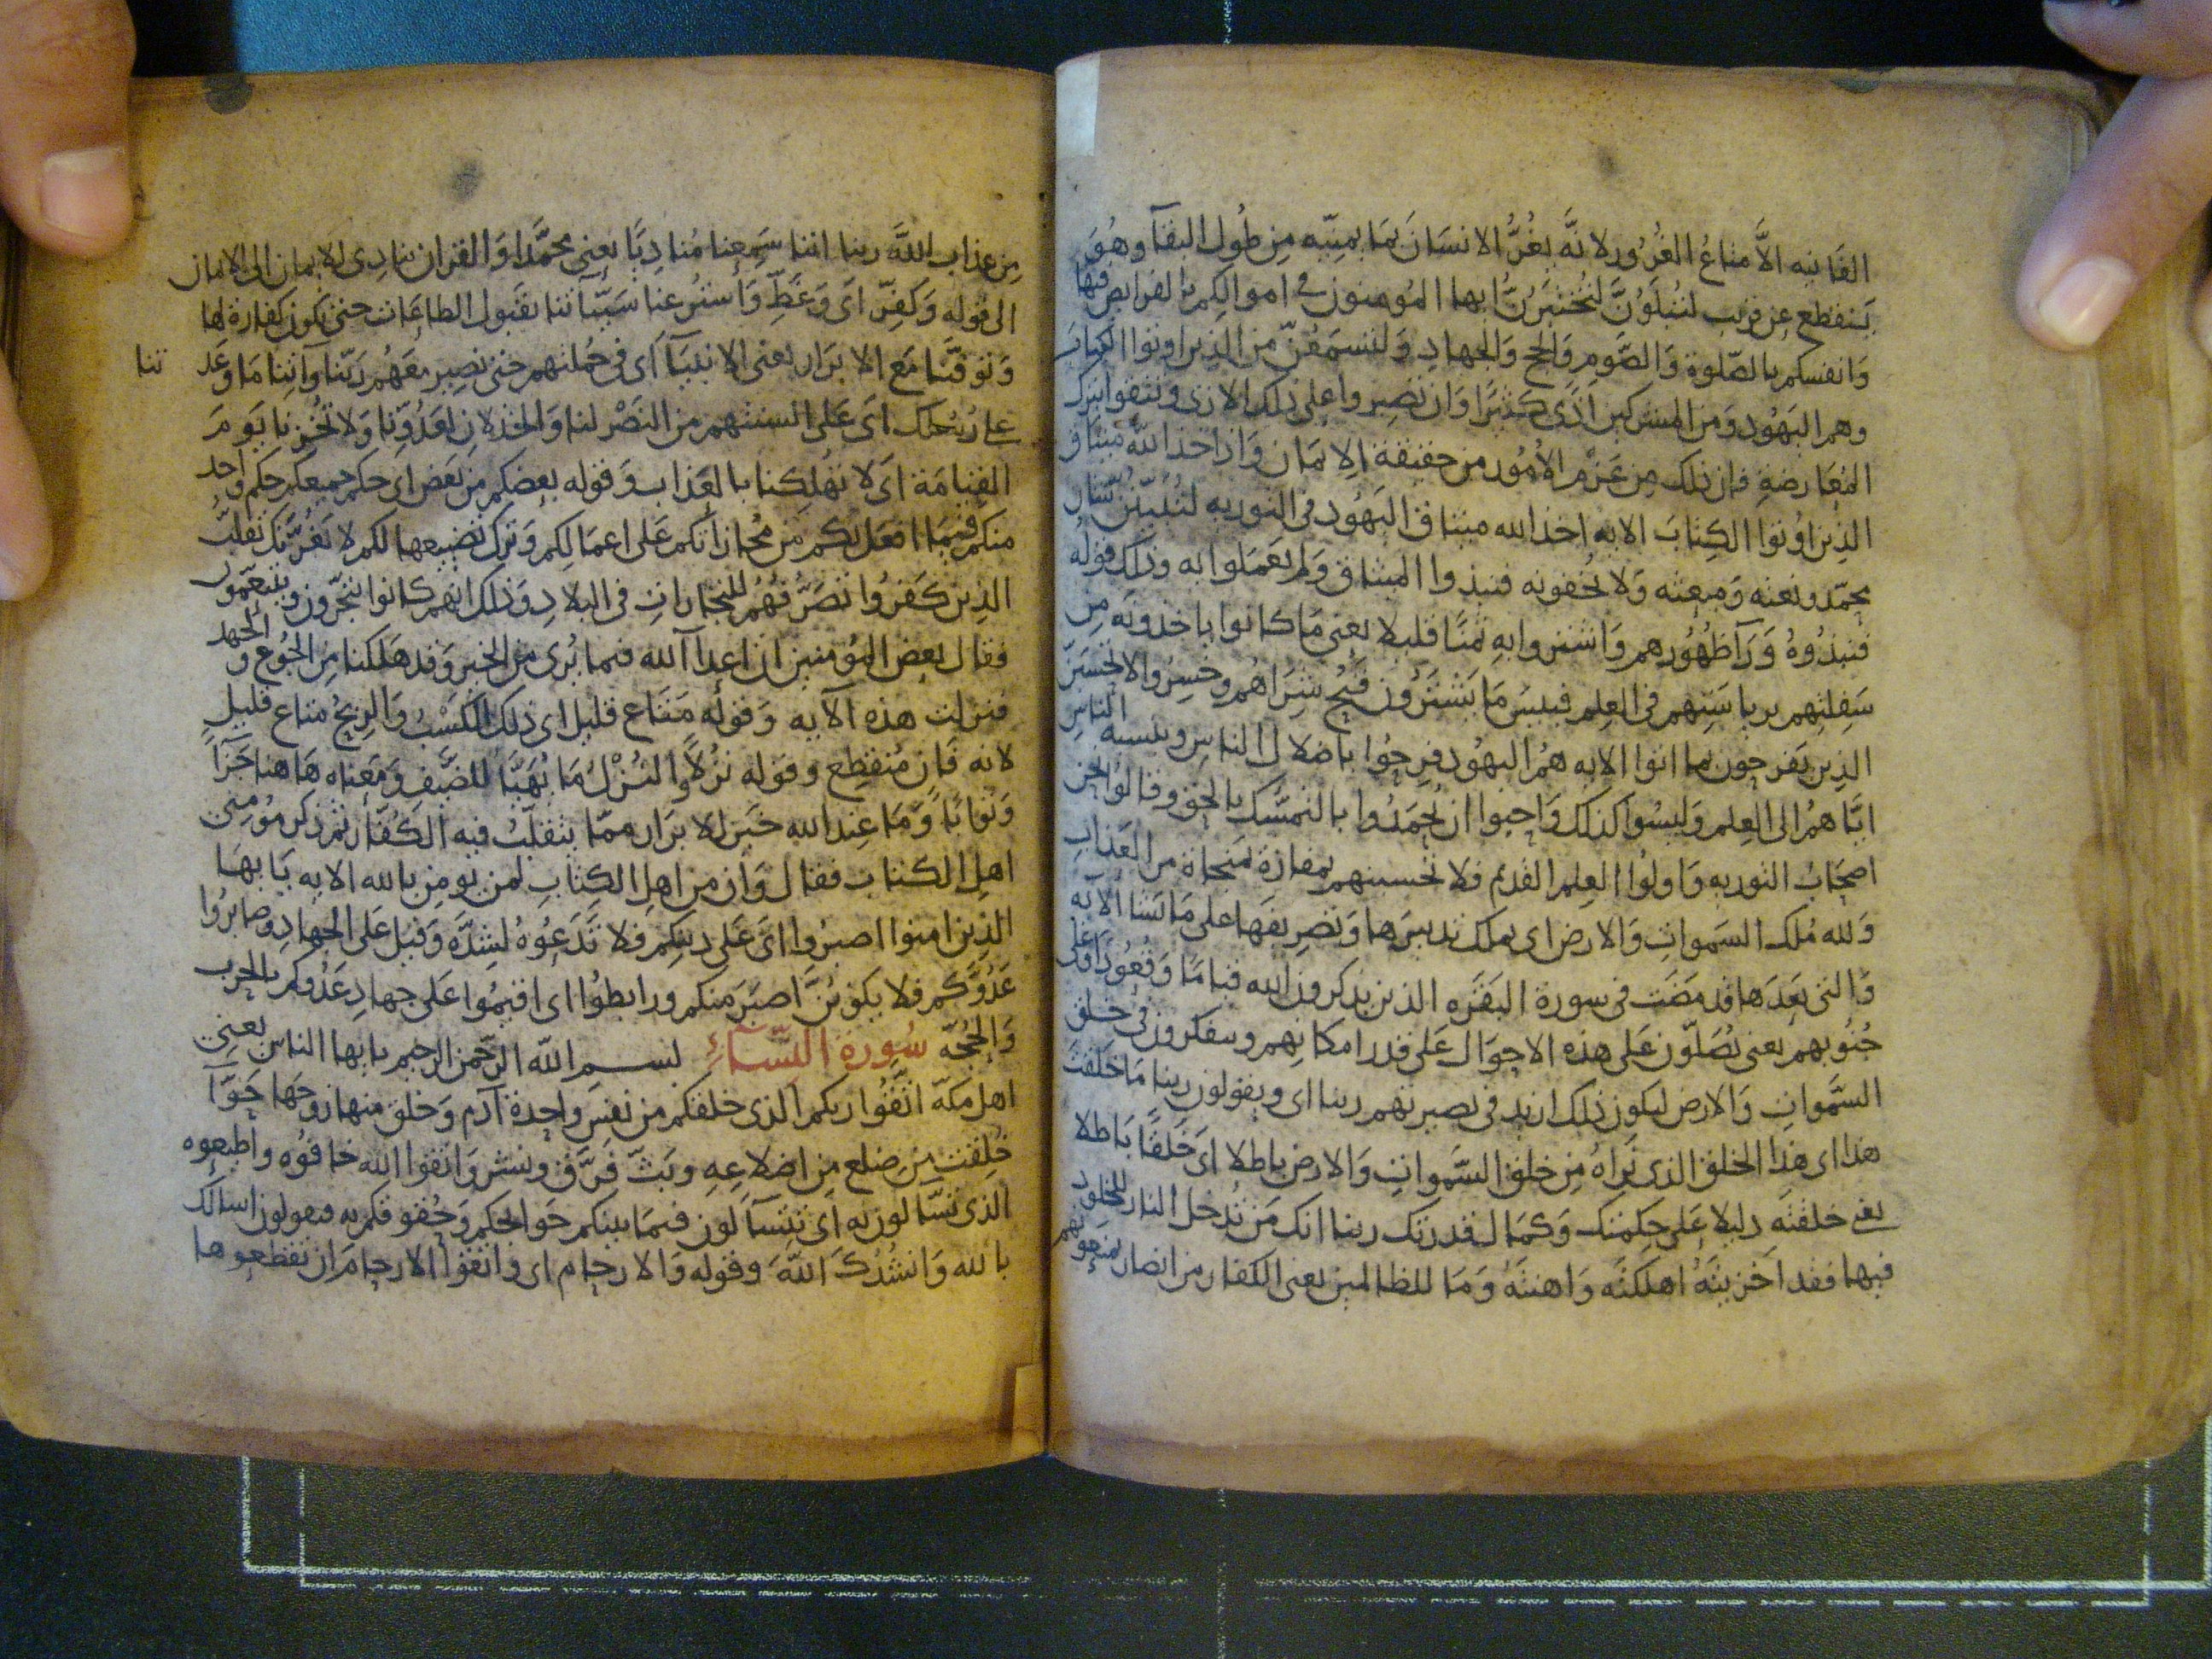 الفانيه الّا متاعُ الغُرُور لانّه يغُرُّ الانسَانَ بمَا يمنّيه مِن طُول البقآ وهُوَ
ينقطع عن قريب لتُبلَوُنَّ لتُختبَرُنَّ ايها المُومنون في اموالِكم بالفرايض فيها
وَانفسكم بالصّلوة وَالصَّومِ وَالحج وَالجهادِ وَلتسمَعُنّ من الذين اوتوا الكتابَ
وهم اليَهُود وَمن المشركين اَذًى كثيرًا وَان تصبروا على ذلك الاذى وتتقوا بترك
المُعَارضةِ فان ذلك مِن عَزم الامُور من حقيقة الايمَان وَاذ اخذ اللهُ ميثاقَ
الذين اوُتوا الكِتابَ الايه اخذ الله ميثاق اليَهُود في التوريه لتُبَيّنُنّ شان
محمّد ونعته وَمبعثه وَلا تُخفونه فنبذوا الميثاق وَلم يعمَلوا به وذلك قولُه
فنبذُوهُ وَرَآ ظهُورِهم وَاشتروا بهِ ثمنًا قليلا يعنى مَا كانوا ياخذونَه مِن
سَفِلتهم برياسَتِهم في العِلم فبيسَ مَا يَشترُون قَبُح شِرَاهُم وخسِرُوا لا تحسَبَنّ
الذِين يَفرحون بما اتوا الايه هُمُ اليهُود فرِحُوا باضلال الناس وبنسبه الناسِ
ايَّاهمُ الى العِلم وَليسُوا كذلك وَاحبوا ان يُحمَدُوا بالتمسُّك بالحق وقالوُا نحن
اصحَابُ التوريه وَاولُوا العِلم القديم فلا تحسبنهم بمفازة بمنجاة من العَذابِ
وَلله مُلك السَموات وَالارض اى يملك تدبيرَها وَتصرِيفَها على مَا يشا الآيَه
وَالتى بعدَها قد مَضَت في سورة البَقَرَه الذين يذكرون الله قيامًا وَقُعُودًا وَعَلى
جُنُوبهم يعنى يُصَلّون على هذه الاحوَال عَلى قدر امكانِهم ويتفكرون في خلق
السَّموات وَالارض ليكون ذلك ازيد في بصيرتهم ربنا اى ويقولون ربنا مَا خلقتَ
هذا اى هذا الخلق الذى نَراهُ مِن خلق السَّمواتِ وَالارض باطلا اىَ خَلقًا بَاطلا
يعنى خلقتَه دليلا عَلى حِكمتك وَكمَال قدرتك ربنا انك مَن تُدخل النار للخلود
فيها فقد اَخزيتَهُ اهلكتَه وَاهنتَهُ وَمَا للظالمين يعنى الكفار من انصار يمنعونهم
مِن عذاب اللهِ ربنا اننا سَمِعنا مُنادِيًا يعنى محمّدًا وَالقران ينادِى للايمان الى الايمان
الى قوله وَكفِّر اىَ وَغطِّ وَاستُر عنا سَيّآتنا بقبول الطاعَات حتى تكون كفارة لها
وَتوفّنا مَع الابرَار يعنى الانبيَآ اَى في جُملتهم حتى نصِير معَهُم رَبّنا وآتِنا مَا وَعَد تنا
على رُسُلك اىَ عَلى السنتهم من النَصْر لنا وَالخذلان لعَدُوّنا وَلا تُخزِنا يَومَ
القِيامَة اىَ لا تهُلِكنا بالعَذاب وَقوله بعضكم مِن بَعض اى حكم جميعكم حكم واحد
منكم فيمَا افعَل بكم من مُجازاتكم عَلى اعمَالِكم وَترك تضييعها لكم لا يَغُرَّنك تقلّبُ
الذِين كَفرُوا تصَرُّفُهُم للتجارات في البلادِ وَذلك انهم كانوا يتجرُون ويتنعّمون
فقال بعض المُؤمنين ان اعدآ الله فيما نُرى من الخير وَقد هَلكنا مِن الجُوع وَالجهد
فنزلت هذه الآيه وَقولُه مَتاع قليل اى ذلك الكَسْبُ وَالرِبحُ متاع قليلٍ
لانه فَانٍ مُنقطِع وقوله نزُلاً وَالنُزْلُ مَا يُهَيَّأ للضّيف وَمَعناه هَاهنا جَزآً
وَثوابًا وَمَا عِند الله خَير للابرَار ممّا يتقلّبُ فيه الكُفّار ثم ذكر مُؤمِنى
اهلِ الكتاب فقال وَان من اهل الكِتابِ لمن يومِن بالله الايه يَا ايهَا
الذِين امنوا اصبرُوا اىَ عَلى دِينِكم فلا تَدَعُوهُ لشِدَّه وَقيل عَلى الجهادِ وصَابرُوا
عَدُوَّكم فلا يكونُنّ اصبَرَ منكم ورابطُوا اى اقيمُوا عَلى جهادِ عَدُوكم بالحرب
وَالحُجّه سُورة النّسآء بسم الله الرّحمن الرّحيم يا ايها الناس يعنى
اهل مَكهّ اتّقُوا ربكم الذى خلقكم من نفسٍ واحِدة آدَم وَخلق منها زوجَها حَوَّآ
خُلِقت مِن ضِلع مِن اضلاعِهِ وبَثّ فرَّق ونشر وَاتقوا الله خافوُه واطيعوه
الذى تسّالون به اى تتسآلون فيمَا بينكم حَوائجكم وَحُقوقكم به فيقولون اسالك
بالله وَانشُدُكَ اللهَ وقوله وَالارحَام اى واتقوُا الارحامَ ان تقطعوها